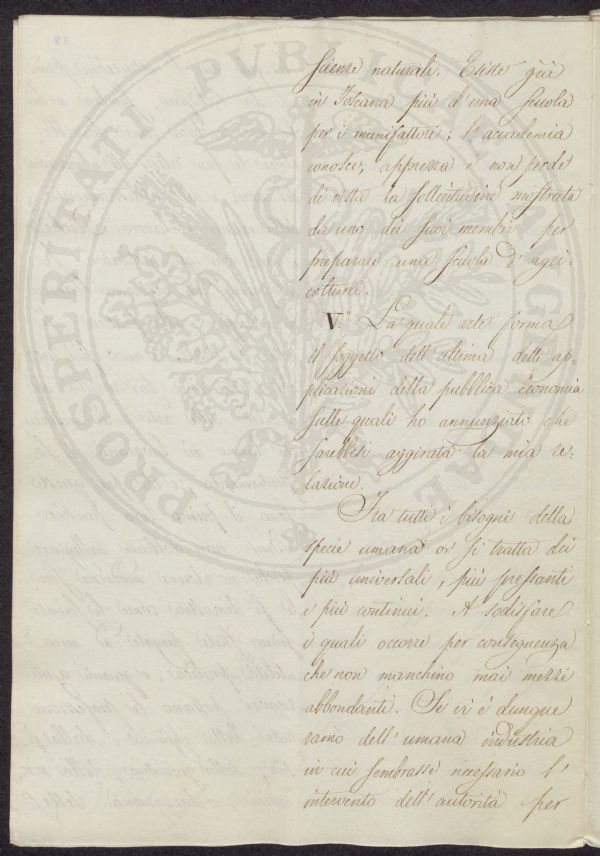 scienze naturali. Esiste già
in Toscana più d'una scuola
per i manifattori; l'accademia
conosce, apprezza e non perde
di vista la sollecitudine mostrata
da uno dei suoi membri per
preparare una scuola d'agri-
coltura.
V.° La quale arte forma
il soggetto dell'ultima delle ap-
plicazioni della pubblica economia
sulle quali ho annunziato che
sarebbesi aggirata la mia re-
lazione.
Fra tutti i bisogni della
specie umana or si tratta dei
più universali, più pressanti
e più continui. A sodisfare
i quali occorre per conseguenza
che non manchino mai mezzi
abbondanti. Se vi è dunque
ramo dell'umana industria
in cui sembrasse necessario l'
intervento dell'autorità per
PROSPERITATI PVBLICAE AVGENDAE